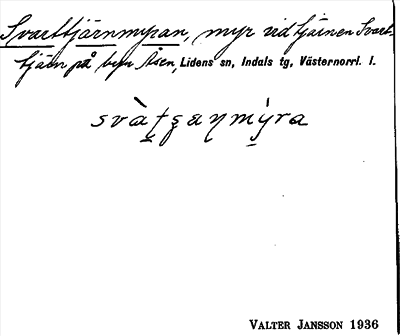 Svarttjärnmyran, myr vid tjärnen Svart-
tjärn på byn Åsen, Lidens sn, Indals tg, Västernorrl. l.
svàt̬ʂaɳmýra
VALTER JANSSON 1936